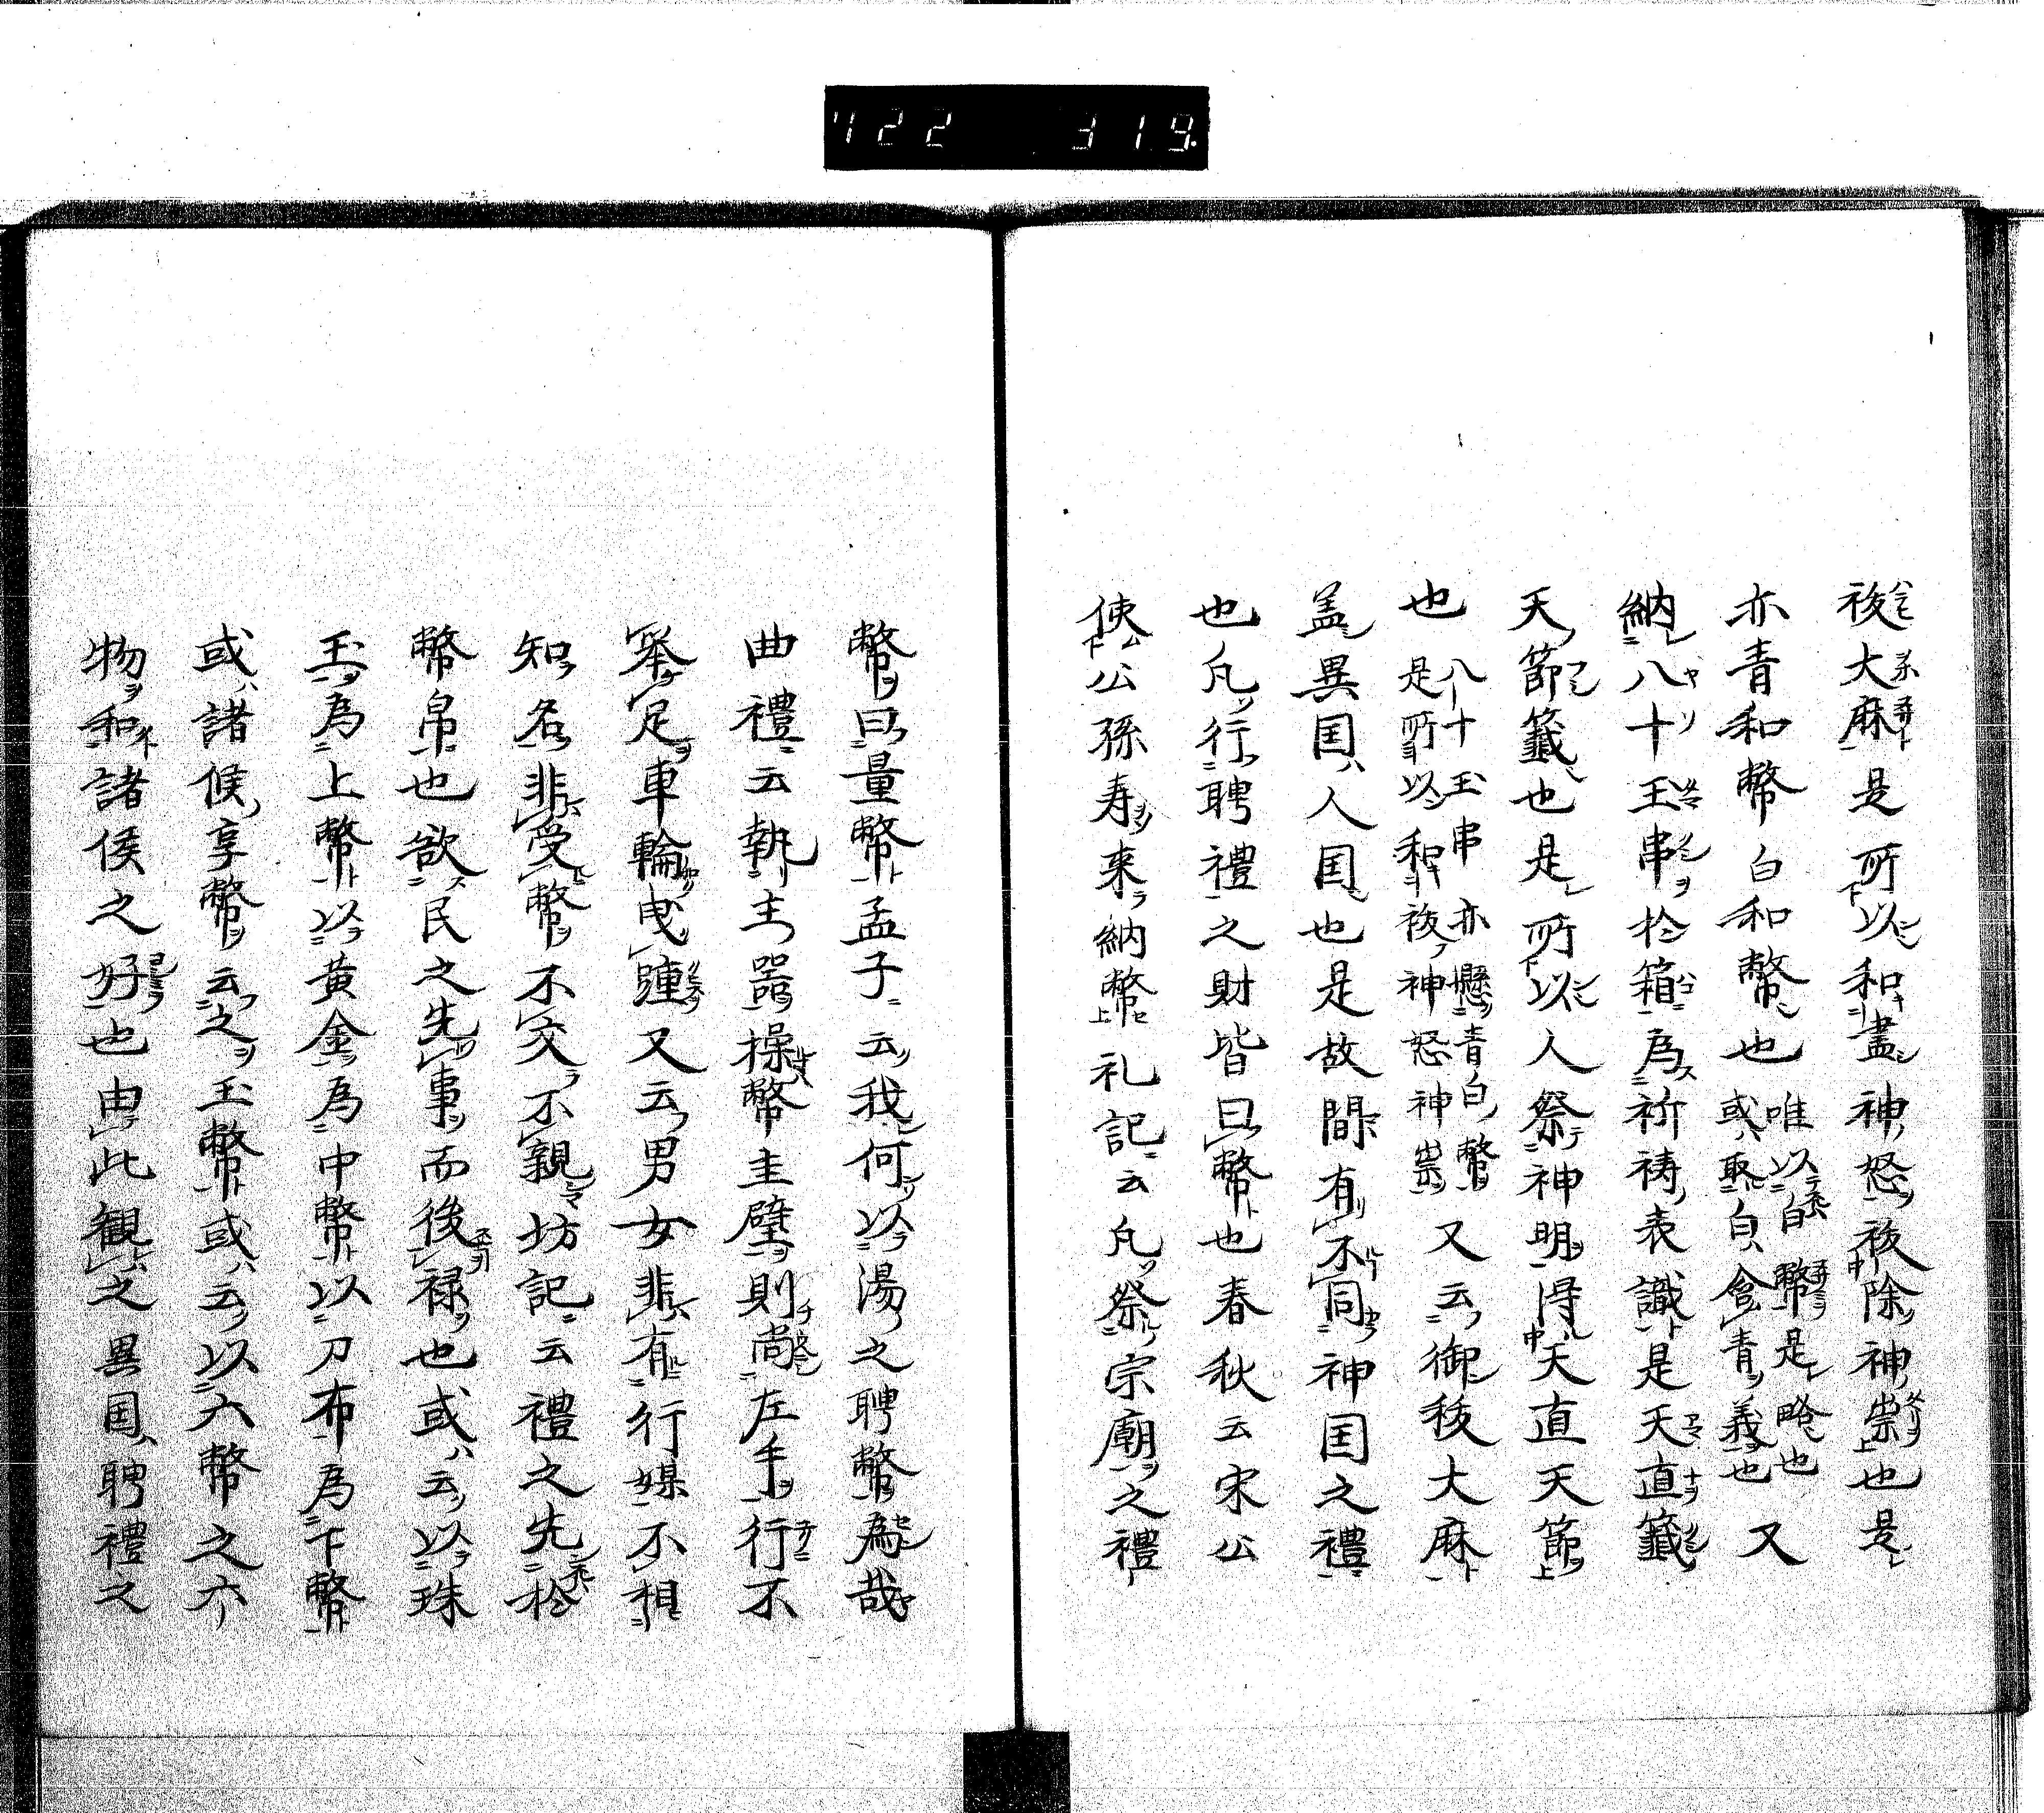 722 319
祓大麻是所以和盡神怒祓除神祟也是
亦青和幣白和幣也唯以白幣是略也或取白含青義也又
納八十玉串於箱為祈祷表識是天直籤
天節籤也是所以人祭神明得天直天節
也八十玉串亦懸青白幣是所以和祓神怒神祟又云御秡大麻
盖異国人国也是故間有不同神国之禮
也凡行聘禮之財皆曰幣也春秋云宋公
使公孫寿来納幣礼記云凡祭宗廟之禮
幣曰量幣孟子云我何以湯之聘幣為哉
曲禮云執主噐操幣圭璧則尚左手行不
舉足車輪曳踵又云男女非有行媒不相
知名非受幣不交不親坊記云禮之先於
幣帛也欲民之先事而後禄也或云以珠
玉為上幣以黄金為中幣以刀布為下幣
或諸侯享幣云之玉幣或云以六幣之六
物和諸侯之好也由此観之異国聘禮之